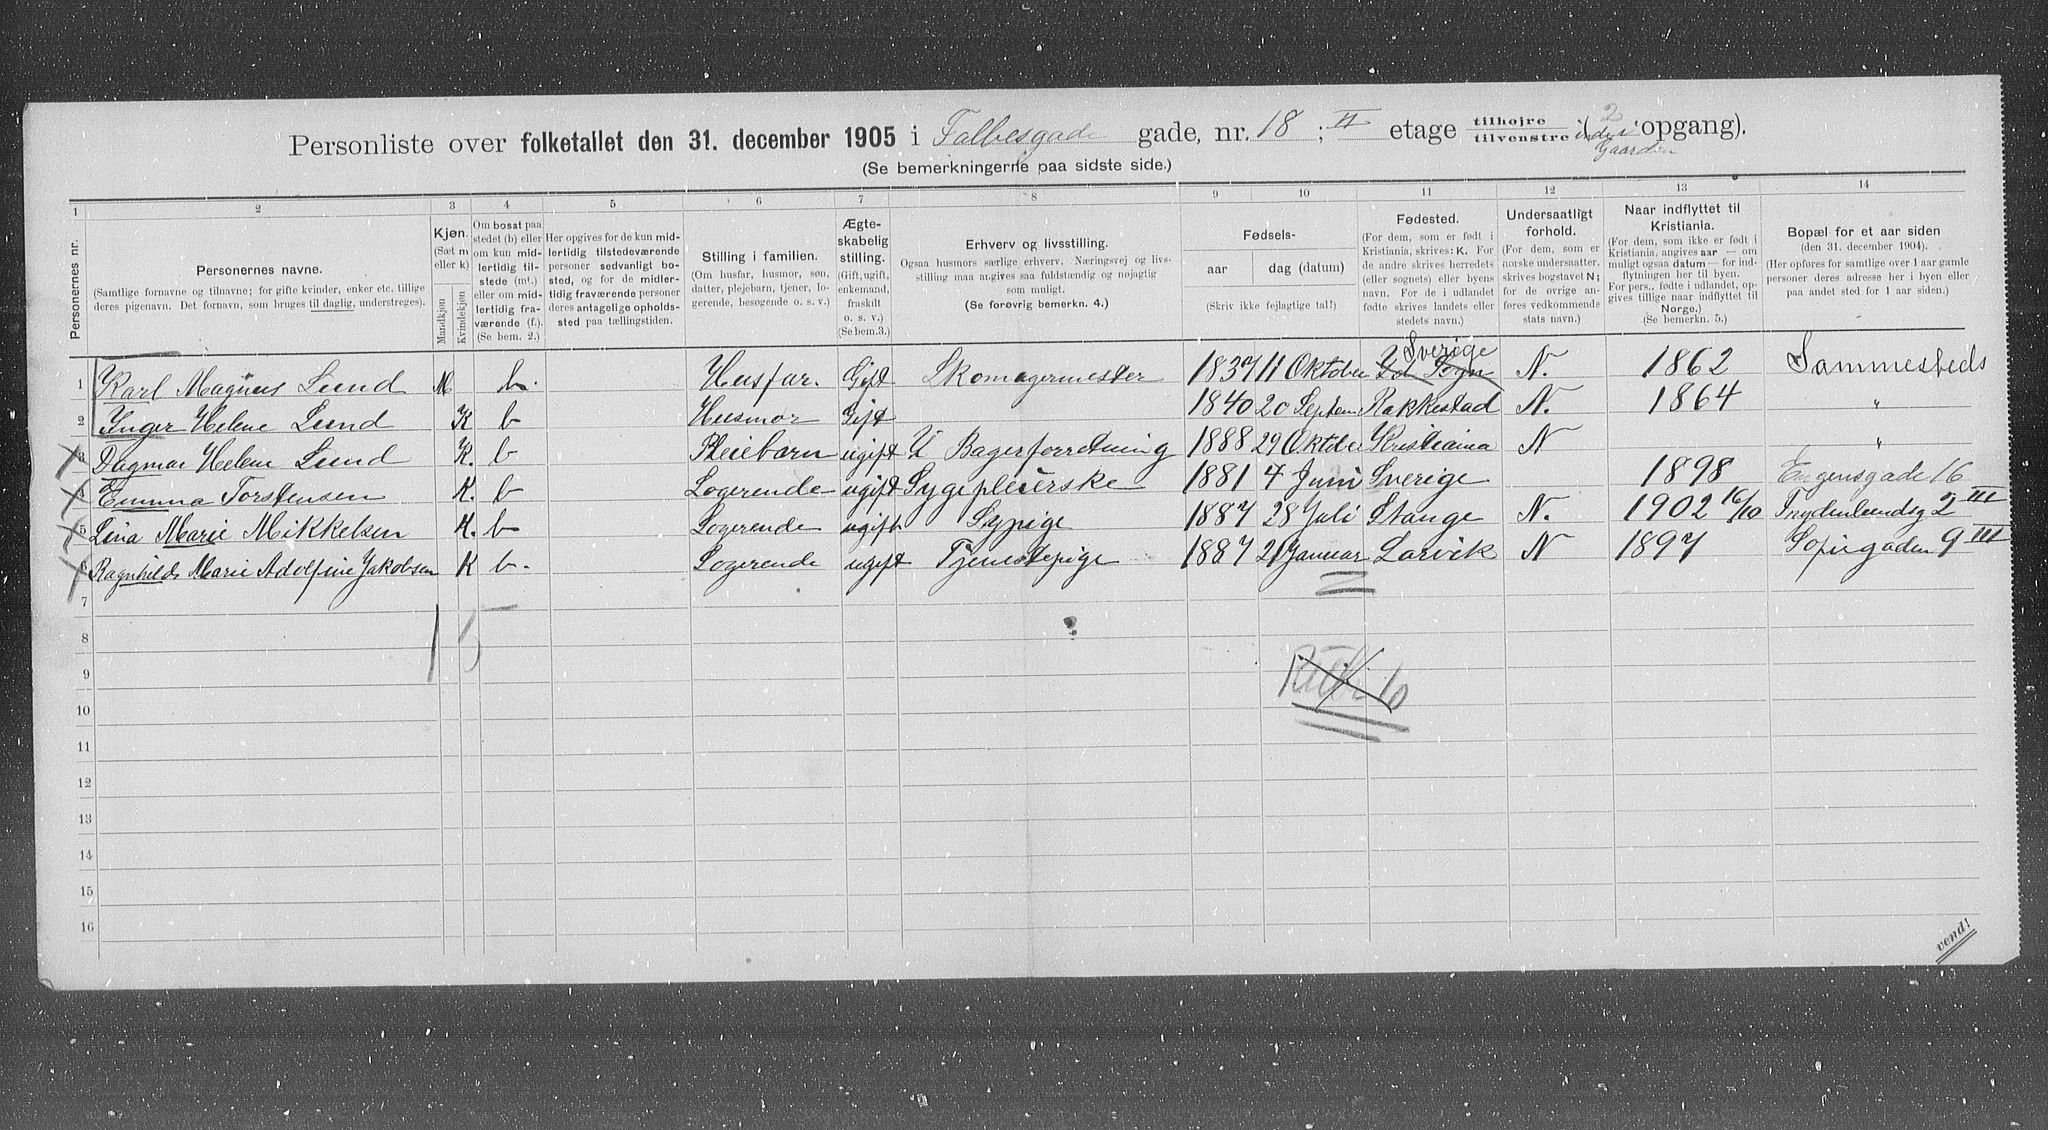 Personliste over folketallet den 31. december 1905 i Falbesgade gade, nr. 18 ; II etage tilhøjre i ( 2 opgang).
tilvenstre Gaarden
(Se bemerkningerne paa sidste side.)
1 2 3 4 5 6 7 8 9 10 11 12 13 14
Personernes nr.
Personernes navne.
(Samtlige fornavne og tilnavne; for gifte kvinder, enker etc. tillige
deres pigenavn. Det fornavn, som bruges til daglig, understreges).
Kjøn.
(Sæt m
eller k)
Mandkjøn
Kvindekjøn
Om bosat paa
stedet (b) eller
om kun mid-
lertidig til-
stede (mt.)
eller om mid-
lertidig fra-
værende (f.).
(Se bem. 2.)
Her opgives for de kun mid-
lertidig tilstedeværende
personer sedvanligt bo-
sted, og for de midler-
tidig fraværende personer
deres antagelige opholds-
sted paa tællingstiden.
Stilling i familien.
(Om husfar, husmor, søn,
datter, plejebarn, tjener, lo-
gerende, besøgende o. s. v.)
Ægte-
skabelig
stilling.
(Gift, ugift,
enkemand,
fraskilt
o. s. v.)
(Se bem.3.)
Erhverv og livsstilling.
Ogsaa husmors særlige erhverv. Næringsvej og livs-
stilling maa angives saa fuldstændig og nøjagtig
som muligt.
(Se forøvrig bemerkn. 4.)
Fødsels-
aar dag (datum)
(Skriv ikke fejlagtige tal!)
Fødested.
(For dem, som er født i
Kristiania, skrives: K. For
de andre skrives herredets
(eller sognets) eller byens
navn. For de i udlandet
fødte skrives landets eller
stedets navn.)
Undersaatligt
forhold.
(For dem, som er
norske undersaatter,
skrives bogstavet N;
for de øvrige an-
føres vedkommende
stats navn.)
Naar indflyttet til
Kristiania.
(For dem, som ikke er født i
Kristiania, angives aar — om
muligt ogsaa datum — for ind-
flytningen her til byen.
For pers., fødte i udlandet, op-
gives tillige naar indflyttet til
Norge.)
(Se bemerkn. 5.)
Bopæl for et aar siden
(den 31. december 1904).
(Her opføres for samtlige over 1 aar gamle
personer deres adresse her i byen eller
paa andet sted for 1 aar siden.)
1 Karl Magnus Lund M b. Husfar. Gift Skomagermester 1837 11 Oktober Sverige N. 1862 Sammesteds
2 Inger Helene Lund K b Husmor Gift 1840 20 Septem Rakkestad N. 1864 "
3 Dagmar Helene Lund K. b Pleiebarn ugift I Bagerforretning 1888 29 Oktober Kristiania N "
4 Emma Torstensen K. b Logerende ugift Sygepleierske 1881 4 Juni Sverige 1898 Eugensgade 16
5 Lina Marie Mikkelsen K. b Logerende ugift Sypige 1887 28 Juli Stange N. 1902 16/10 Frydenlundsg 2 III
6 Ragnhilds Marie Adolfine Jakobsen K b. Logerende ugift Tjenestepige 1887 21 Januar Larvik N 1897 Sofiegaden 9 III
7
8 1 5
9
10
11
12
13
14
15
16
vend!